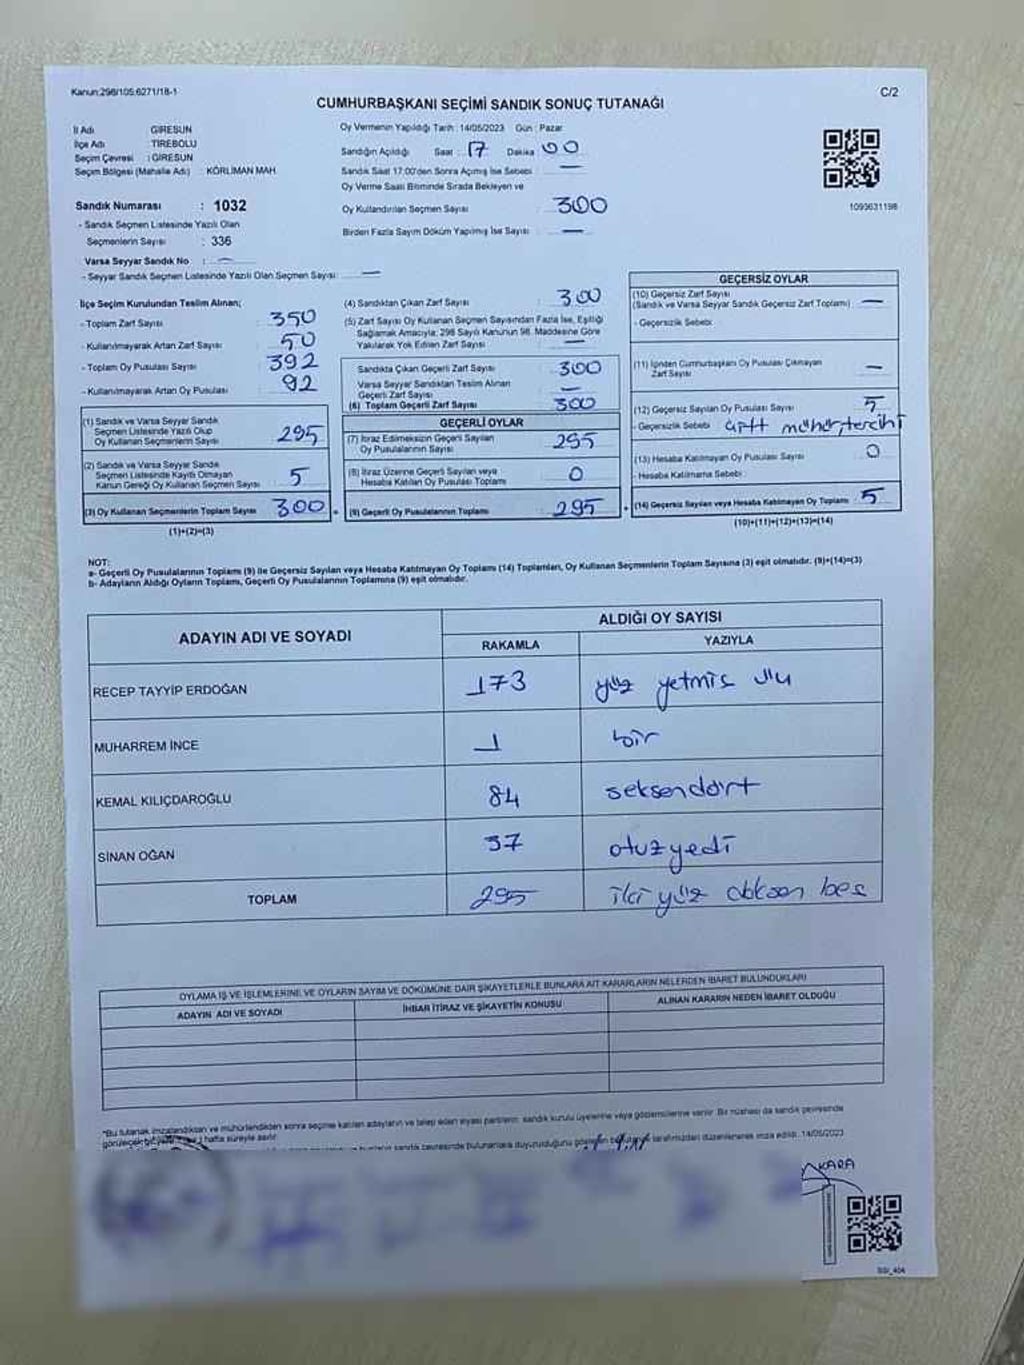 Kanun:298/105;6271/18-1
C/2
CUMHURBAŞKANI SEÇİMİ SANDIK SONUÇ TUTANAĞI
İl Adı GİRESUN
İlçe Adı TİREBOLU
Seçim Çevresi : GİRESUN
Seçim Bölgesi (Mahalle Adı) : KÖRLİMAN MAH.
Sandık Numarası : 1032
- Sandık Seçmen Listesinde Yazılı Olan
Seçmenlerin Sayısı : 336
Varsa Seyyar Sandık No : —
- Seyyar Sandık Seçmen Listesinde Yazılı Olan Seçmen Sayısı : —
Oy Vermenin Yapıldığı Tarih : 14/05/2023 Gün : Pazar
Sandığın Açıldığı Saat : 17 Dakika 00
Sandık Saat 17:00'den Sonra Açılmış İse Sebebi : —
Oy Verme Saati Bitiminde Sırada Bekleyen ve
Oy Kullandırılan Seçmen Sayısı : 300
Birden Fazla Sayım Döküm Yapılmış İse Sayısı : —
1093631198
İlçe Seçim Kurulundan Teslim Alınan;
- Toplam Zarf Sayısı : 350
- Kullanılmayarak Artan Zarf Sayısı : 50
- Toplam Oy Pusulası Sayısı : 392
- Kullanılmayarak Artan Oy Pusulası : 92
(1) Sandık ve Varsa Seyyar Sandık
Seçmen Listesinde Yazılı Olup
Oy Kullanan Seçmenlerin Sayısı 295
(2) Sandık ve Varsa Seyyar Sandık
Seçmen Listesinde Kayıtlı Olmayan
Kanun Gereği Oy Kullanan Seçmen Sayısı 5
(3) Oy Kullanan Seçmenlerin Toplam Sayısı 300
(1)+(2)=(3)
(4) Sandıktan Çıkan Zarf Sayısı : 300
(5) Zarf Sayısı Oy Kullanan Seçmen Sayısından Fazla İse, Eşitliği
Sağlamak Amacıyla; 298 Sayılı Kanunun 98. Maddesine Göre
Yakılarak Yok Edilen Zarf Sayısı : —
Sandıkta Çıkan Geçerli Zarf Sayısı : 300
Varsa Seyyar Sandıktan Teslim Alınan
Geçerli Zarf Sayısı : —
(6) Toplam Geçerli Zarf Sayısı : 300
GEÇERLİ OYLAR
(7) İtiraz Edilmeksizin Geçerli Sayılan
Oy Pusulalarının Sayısı 295
(8) İtiraz Üzerine Geçerli Sayılan veya
Hesaba Katılan Oy Pusulası Toplamı 0
(9) Geçerli Oy Pusulalarının Toplamı 295
GEÇERSİZ OYLAR
(10) Geçersiz Zarf Sayısı
(Sandık ve Varsa Seyyar Sandık Geçersiz Zarf Toplamı) : —
- Geçersizlik Sebebi :
(11) İçinden Cumhurbaşkanı Oy Pusulası Çıkmayan
Zarf Sayısı : —
(12) Geçersiz Sayılan Oy Pusulası Sayısı : 5
- Geçersizlik Sebebi : çift mühür, tercihi
(13) Hesaba Katılmayan Oy Pusulası Sayısı : 0
- Hesaba Katılmama Sebebi :
(14) Geçersiz Sayılan veya Hesaba Katılmayan Oy Toplamı 5
(10)+(11)+(12)+(13)=(14)
NOT:
a- Geçerli Oy Pusulalarının Toplamı (9) ile Geçersiz Sayılan veya Hesaba Katılmayan Oy Toplamı (14) Toplamları, Oy Kullanan Seçmenlerin Toplam Sayısına (3) eşit olmalıdır. (9)+(14)=(3)
b- Adayların Aldığı Oyların Toplamı, Geçerli Oy Pusulalarının Toplamına (9) eşit olmalıdır.
ADAYIN ADI VE SOYADI ALDIĞI OY SAYISI
RAKAMLA YAZIYLA
RECEP TAYYİP ERDOĞAN 173 yüz yetmiş üç
MUHARREM İNCE 1 bir
KEMAL KILIÇDAROĞLU 84 seksendört
SİNAN OĞAN 37 otuzyedi
TOPLAM 295 iki yüz doksan beş
OYLAMA İŞ VE İŞLEMLERİNE VE OYLARIN SAYIM VE DÖKÜMÜNE DAİR ŞİKAYETLERLE BUNLARA AİT KARARLARIN NELERDEN İBARET BULUNDUKLARI
ADAYIN ADI VE SOYADI İHBAR İTİRAZ VE ŞİKAYETİN KONUSU ALINAN KARARIN NEDEN İBARET OLDUĞU
*Bu tutanak imzalandıktan ve mühürlendikten sonra seçime katılan adayların ve talep eden siyasi partilerin, sandık kurulu üyelerine veya gözlemcilerine verilir. Bir nüshası da sandık çevresinde
görülecek bir yere 1 hafta süreyle asılır.
sandık çevresinde bulunanlara duyurulduğunu gösteren tarafımızdan düzenlenerek imza edildi. 14/05/2023
KARA